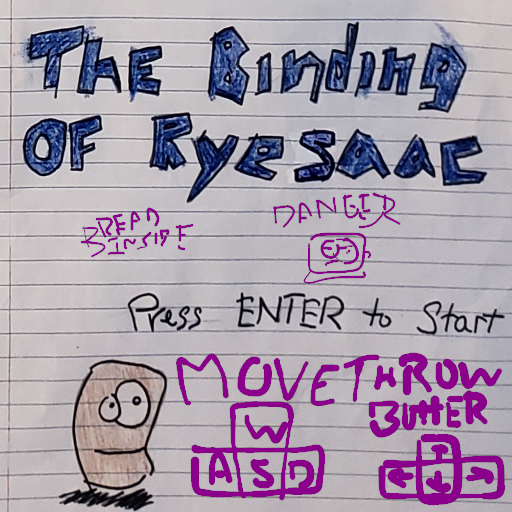 THE BINDING
OF RyeSAAC
BREAD
INSIDE
DANGER
Press ENTER to Start
MOVE
W
A S D
THROW
BUTTER
↑
← ↓ →